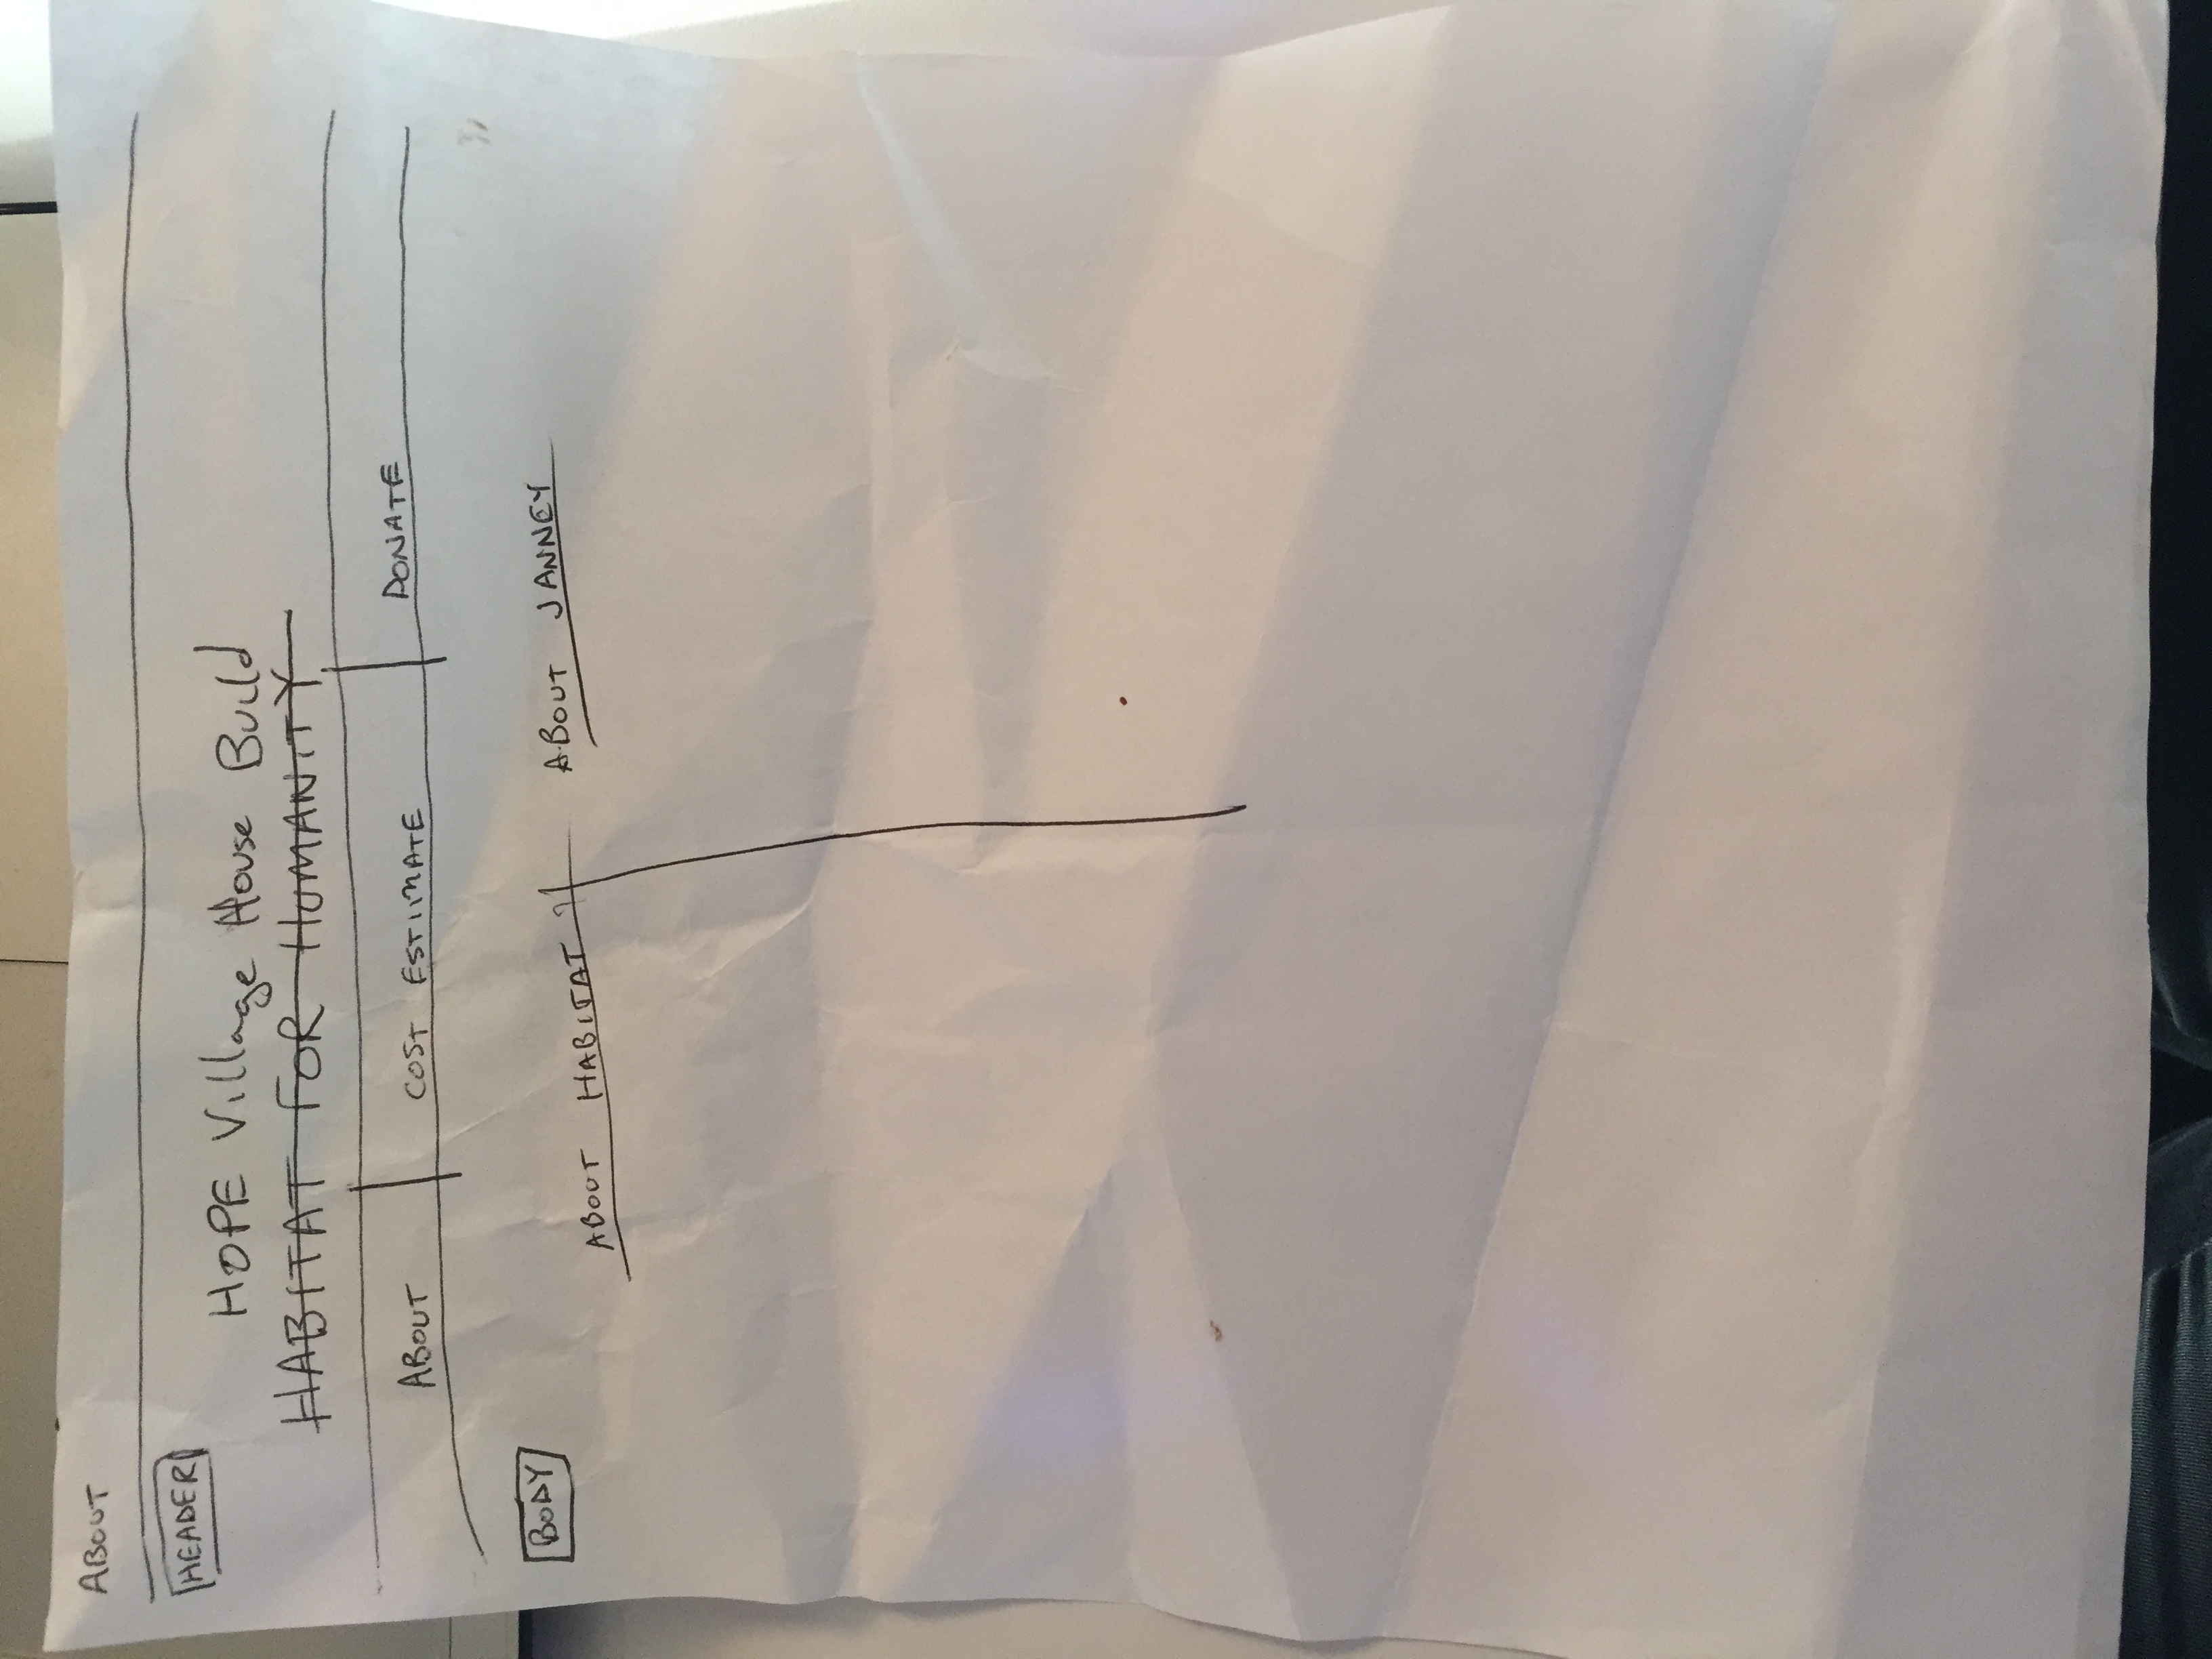 ABOUT
HEADER
HOPE Village House Build
HABITAT FOR HUMANITY
ABOUT COST ESTIIMATE DONATE
BODY
ABOUT HABITAT ? ABOUT JANNEY